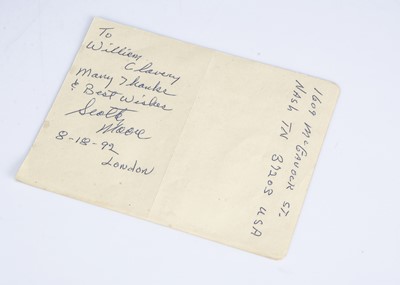 To
William
Clavery
Many Thanks
& Best Wishes
Scotty
Moore
8-18-92
London
1609 McGavock St.
Nash TN 37203 USA